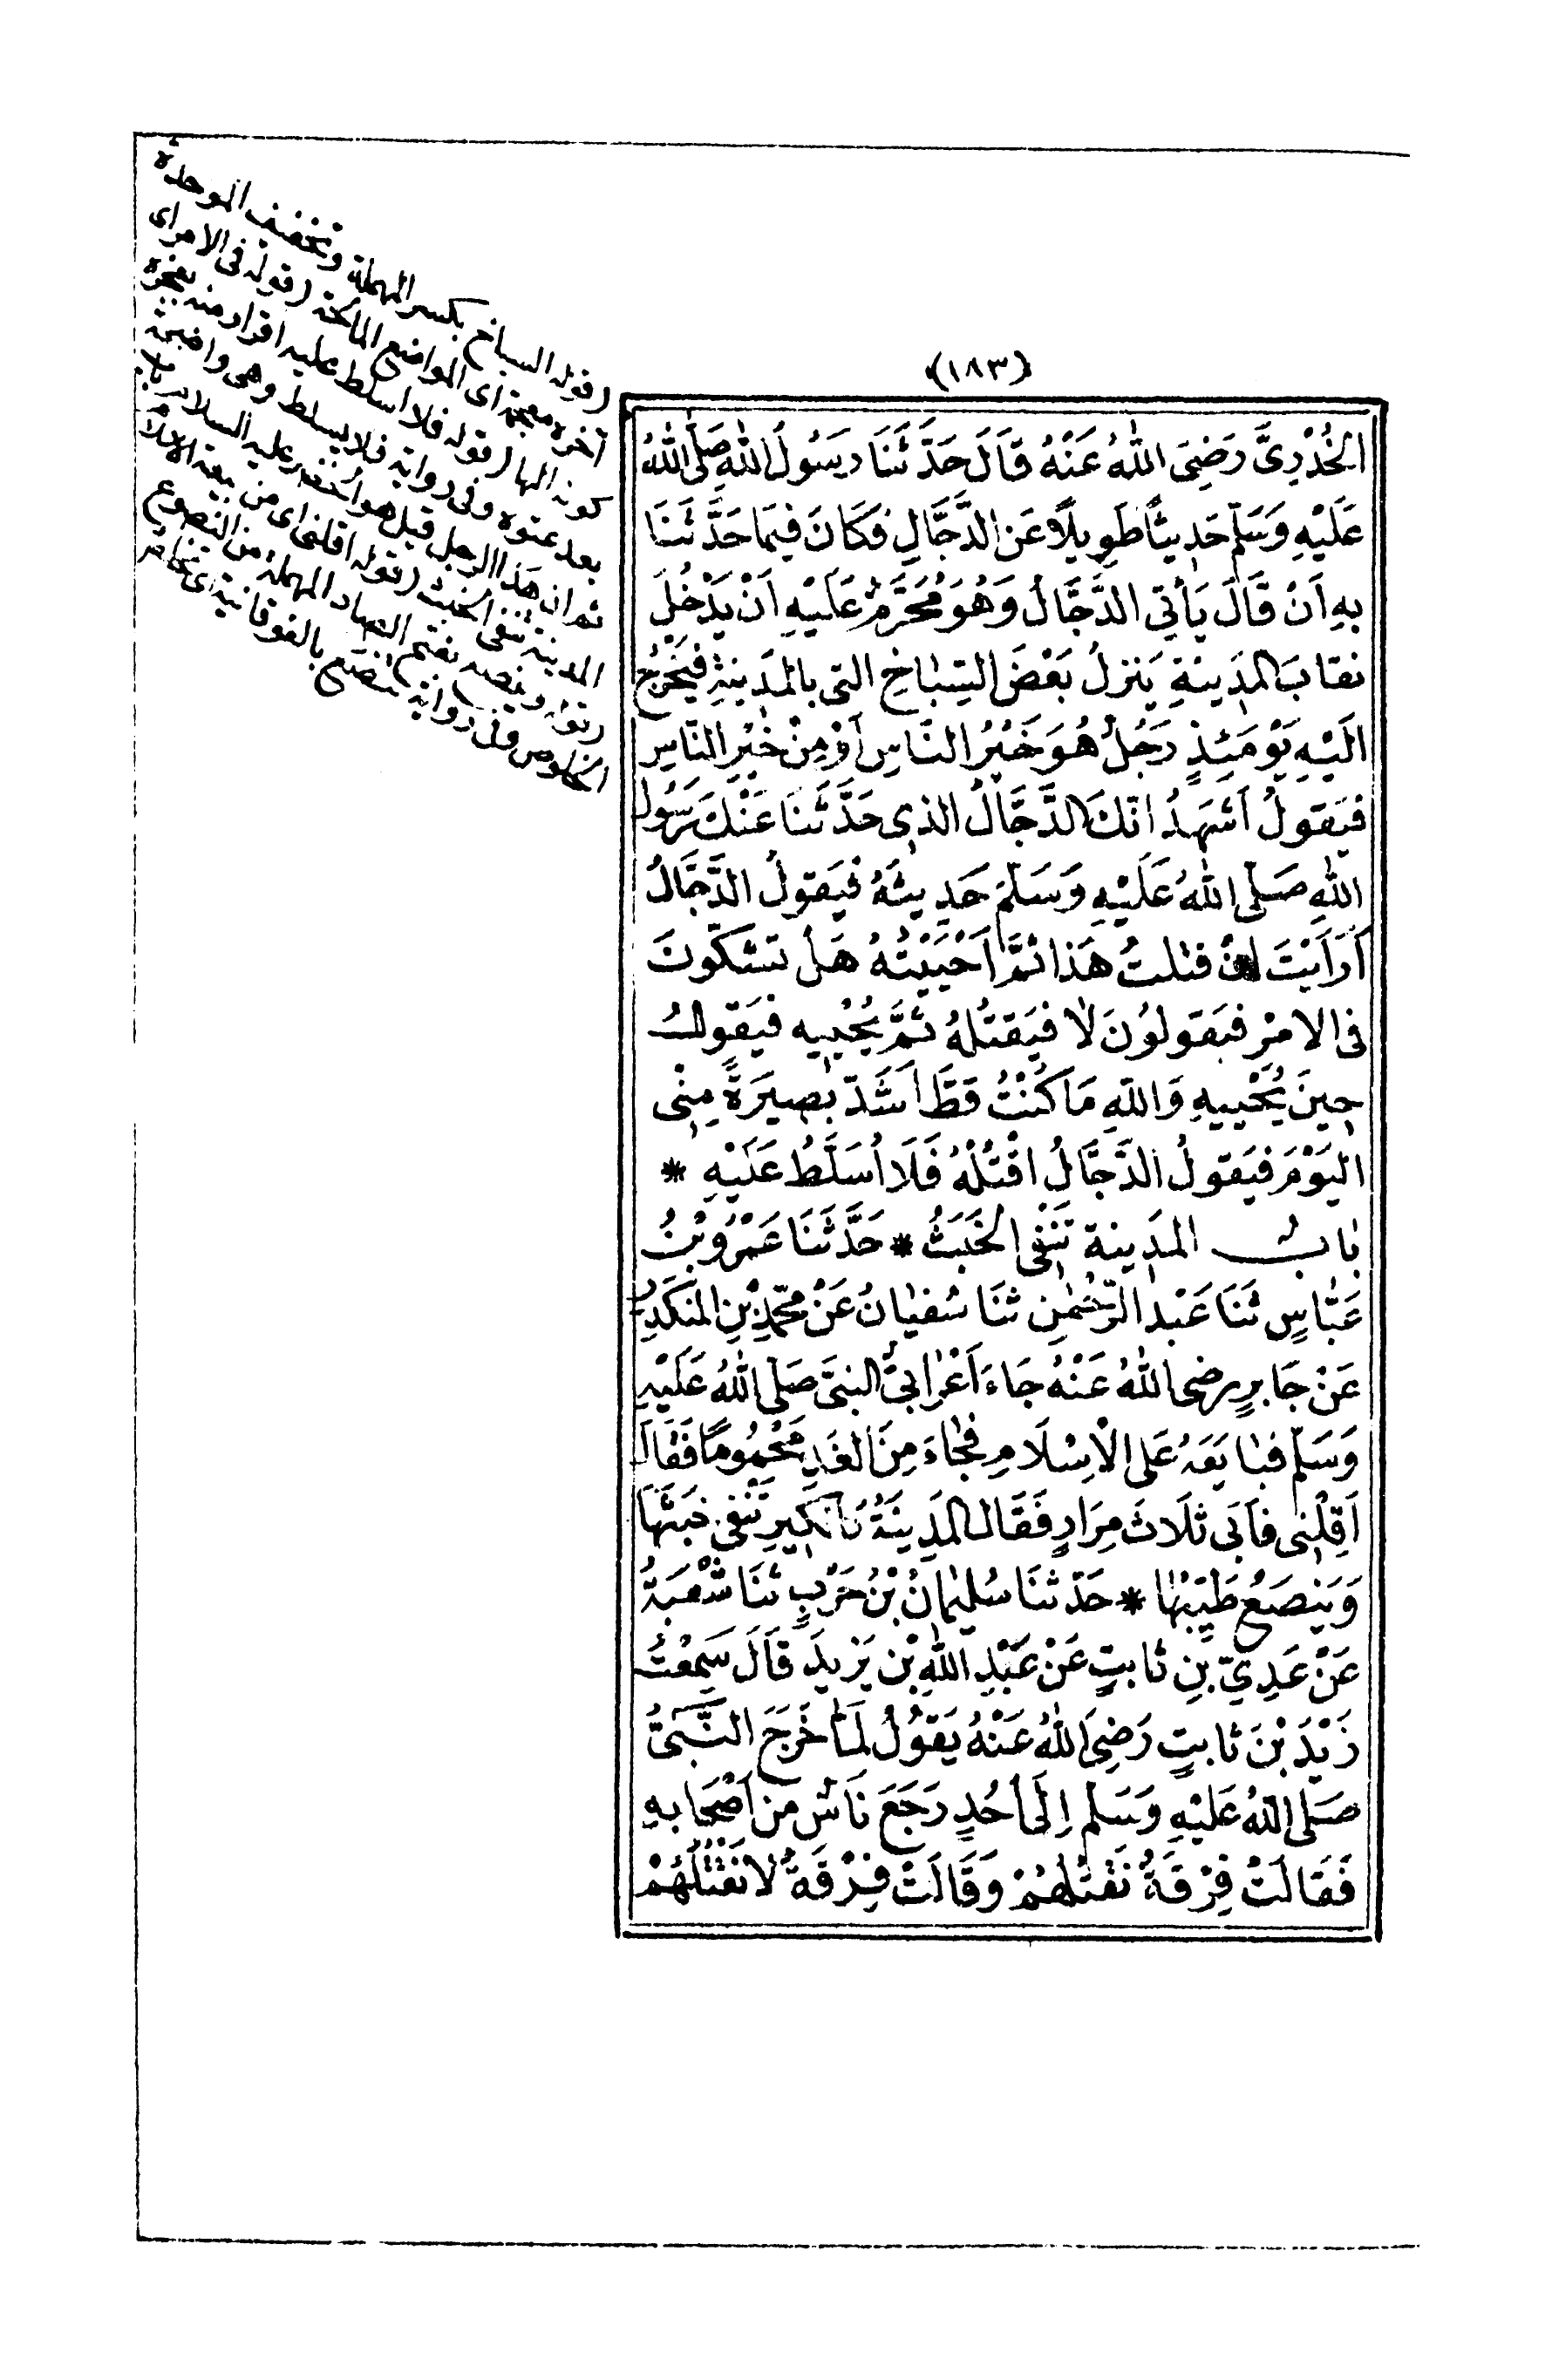 (١٨٣)
الخُدْرِىَّ رَضِىَ اللهُ عَنْهُ قَالَ حَدَّثَنَا رَسُولُ اللهِ صَلَّى اللهُ
عَلَيْهِ وَسَلَّم حَدِيثًا طَوِيلًا عَنِ الدَّجَّالِ فَكَانَ فِيمَا حَدَّثَنَا
بِهِ اَنْ قَالَ يَأْتِى الدَّجَّالُ وَهُوَ مُحَرَّمٌ عَلَيْهِ اَنْ يَدْخُلَ
نقابَ المَدِينَةِ يَنزلُ بَعْضَ السِّبَاخِ التى بالمَدِينَةِ فَيَخْرُجُ
اِلَيْهِ يَوْمَئِذٍ رَجُلٌ هُوَ خَيْرُ النَّاسِ اَوْ مِنْ خَيْرِ النَّاسِ
فيَقولُ اَشْهَدُ انّكَ الدَّجَّالُ الذِى حَدَّثَنَا عَنْكَ رَسُولُ
اللهِ صَلّى اللهُ عَلَيْهِ وَسَلّمَ حَدِيثَهُ فيَقولُ الدَّجَّالُ
أَرَأَيْتَ اِنْ قتلتُ هَذا ثمَّ اَحْيَيْتُهُ هَلْ تشكّونَ
فى الامْرِ فيَقولوُنَ لا فيَقتُلهُ ثمَّ يُحْيِيهِ فيَقولُ
حِينَ يُحْيِيهِ وَاللهِ مَا كُنْتُ قطَّ اَشَدّ بَصِيرَةً مِنّى
اليَوْمَ فيَقولُ الدَّجَّالُ اقْتُلُهُ فَلَا اُسَلَّطُ عَلَيْهِ *
بابٌ المَدِينة تَنْفِى الخَبَثَ * حَدَّثَنَا عَمْرُو بْنُ
عَبَّاسٍ ثَنَا عَبْد الرَّحْمٰنِ ثَنَا سُفيَانُ عَنْ محَمّدِ بْنِ المنكَدِرِ
عَنْ جَابِرٍ رضى اللهُ عَنْهُ جَاءَ اَعْرَابِىٌّ النبىَّ صَلى اللهُ عَلَيْهِ
وَسَلّم فبَايَعَهُ عَلى الْاِسْلَامِ فجَاءَ مِنَ الغَدِ مَحْمُومًا فَقَالَ
اَقِلْنِى فاَبَى ثَلَاثَ مِرَارٍ فَقَالَ المَدِينَةُ كَالكِيرِ تَنْفِى خَبَثَهَا
وَيَنصَعُ طَيِّبُهَا * حَدّثنَا سُليمَانُ بْنُ حَرْبٍ ثنَا شُعْبَةُ
عَنْ عَدِيّ بنِ ثابتٍ عَنْ عَبْدِ اللهِ بْن يَزيدَ قَالَ سَمِعْتُ
زَيْدَ بْنَ ثابتٍ رَضِىَ اللهُ عَنْهُ يَقوُلُ لَمّا خَرَجَ النَّبىُّ
صَلى اللهُ عَليْهِ وَسَلم اِلَى اُحُدٍ رَجَعَ نَاسٌ مِن اَصْحَابهِ
فَقَالَتْ فِرْقَةٌ نَقتُلُهُمْ وَقَالَتْ فِرْقَةٌ لا نَقْتُلُهُمْ
(قوله السباخ بكسر المهملة وتخفيف الموحدة
آخره معجمة اى المواضع المالحة (قوله فى الامر اى
كونه الها (قوله فلا اسلط عليه اقرار منه بعجزه
بعد عتوه وفى رواية فلا يسلط وهى واضحة
ثم ان هذا الرجل قيل هو الخضر عليه السلام باب
المدينة تنفى الخبث (قوله اقلنى اى من بيعة الاسلام
(قوله وينصع بفتح الصاد المهملة من النصوع
الخلوص وفى رواية تنصع بالفوقانية اى